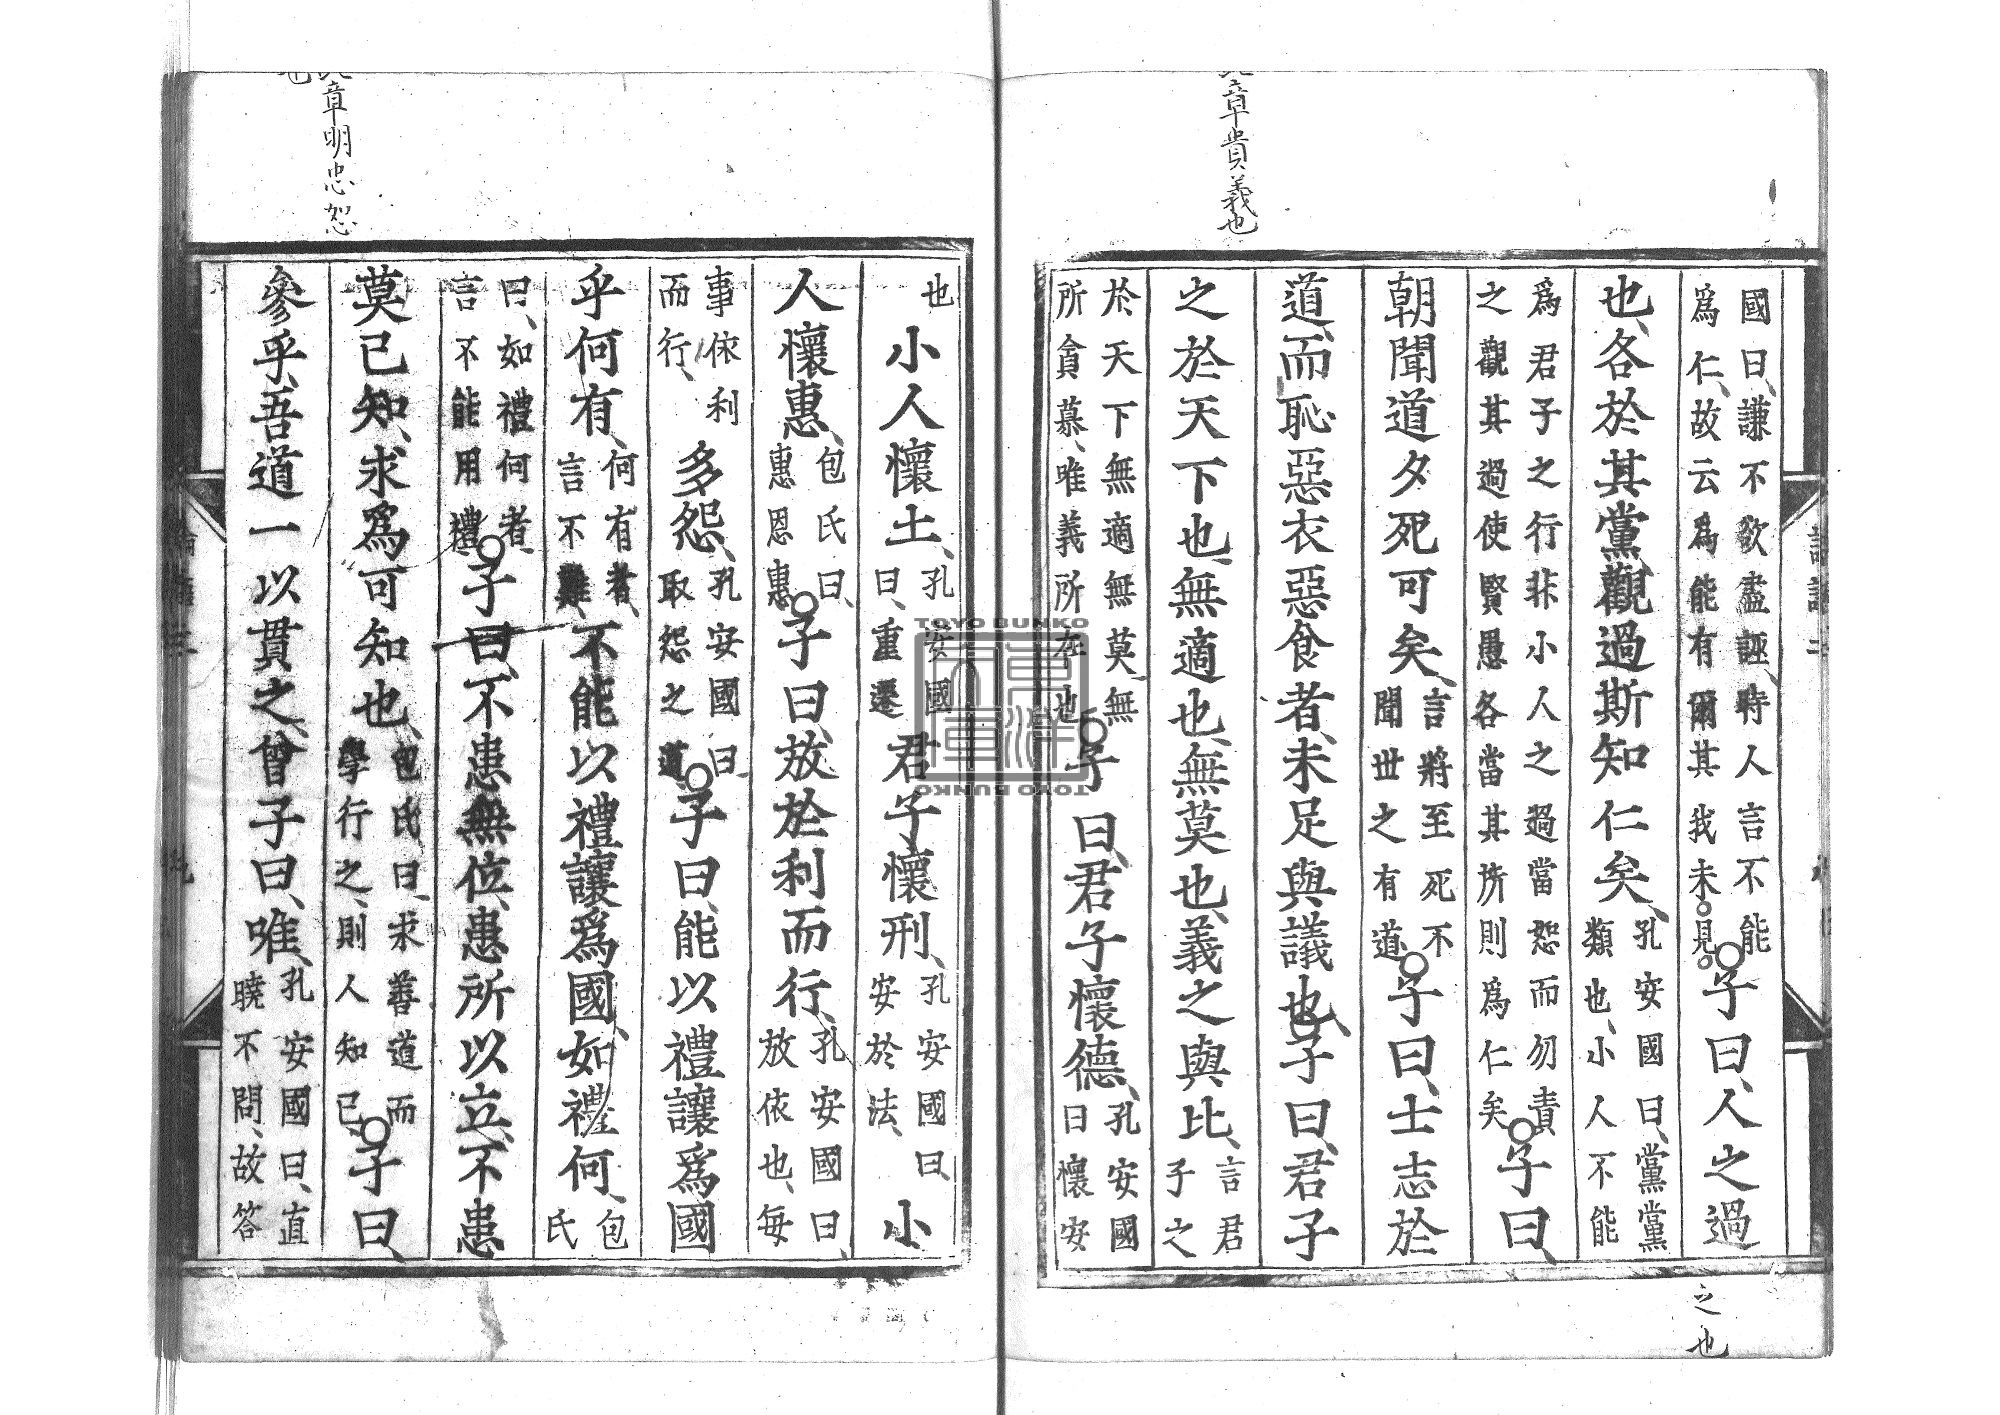 章貴義也
國曰、謙不欲盡誣時人言不能為仁、故云為能有爾其我未見○子曰、人之過
也、各於其黨、觀過斯知仁矣、孔安國曰、黨黨類也、小人不能
為君子之行非小人之過當恕而勿責之觀其過使賢愚各當其所則為仁矣○子曰、
朝聞道夕死可矣、言將至死不聞世之有道○子曰、士志於
道、而恥惡衣惡食者、未足與議也、○子曰、君子
之於天下也、無適也、無莫也、義之與比、言君子之
於天下無適無莫、無所貪慕、唯義所在也○子曰、君子懷德、孔安國曰懷安
之也
章明忠恕
也
也小人懷土、孔安國曰、重遷君子懷刑、孔安國曰、安於法、小
人懷惠、包氏曰、惠恩惠○子曰、放於利而行、孔安國曰、放依也、每
事依利而行、多怨、孔安國曰、取怨之道○子曰、能以禮讓為國
乎何有、何有者、言不難、不能以禮讓為國、如禮何、包氏
曰、如禮何者、言不能用禮○子曰、不患無位、患所以立、不患
莫己知、求為可知也、包氏曰、求善道而學行之、則人知己○子曰、
參乎、吾道一以貫之、曾子曰、唯、孔安國曰、直曉不問、故答
TOYO BUNKO
東洋文庫
TOYO BUNKO